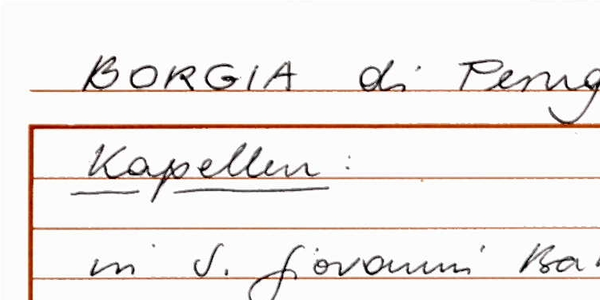 BORGIA di Perug
Kapellen:
in S. Giovanni Ba